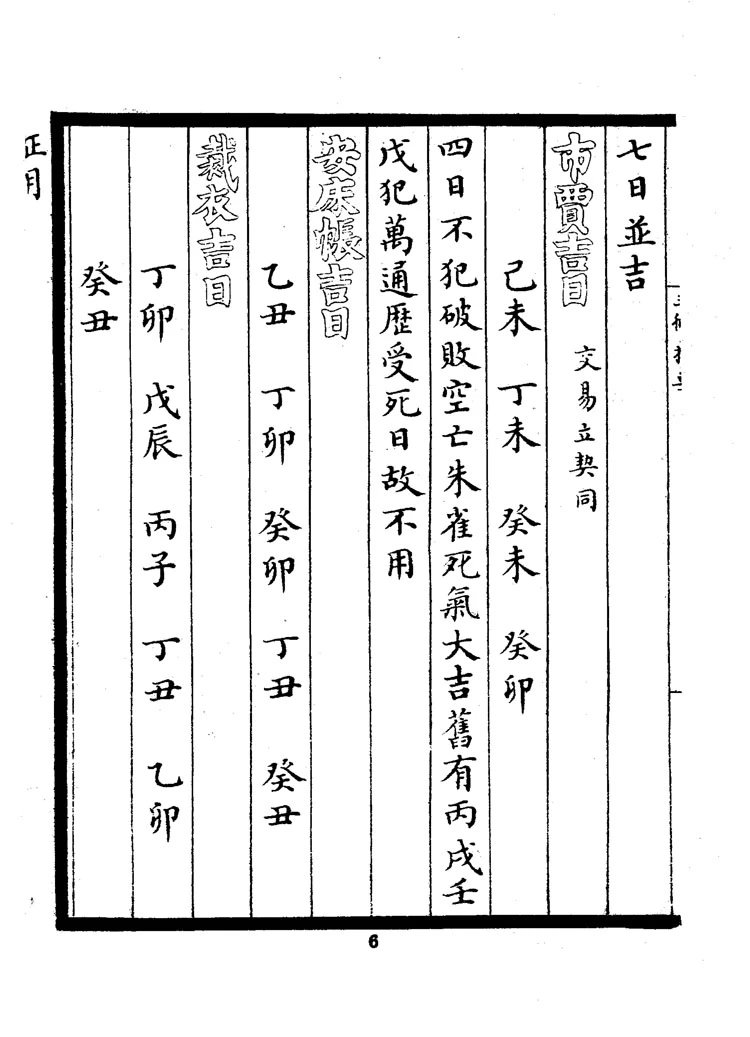 七日並吉
市賈吉日 交易立契同
己未 丁未 癸未 癸卯
四日不犯破敗空亡朱雀死氣大吉舊有丙戌壬
戌犯萬通歷受死日故不用
安床帳吉日
乙丑 丁卯 癸卯 丁丑 癸丑
裁衣吉日
丁卯 戊辰 丙子 丁丑 乙卯
癸丑
正月
6